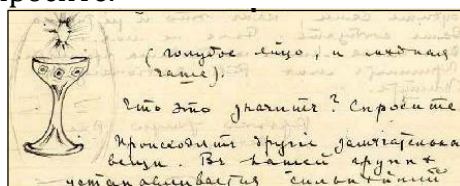 (голубое яйцо, и медная
чаше).
Что это значитъ? Спросите
Происходитъ други замѣчательна
вещи. Въ вашей группѣ
устанавливается сильнѣйший